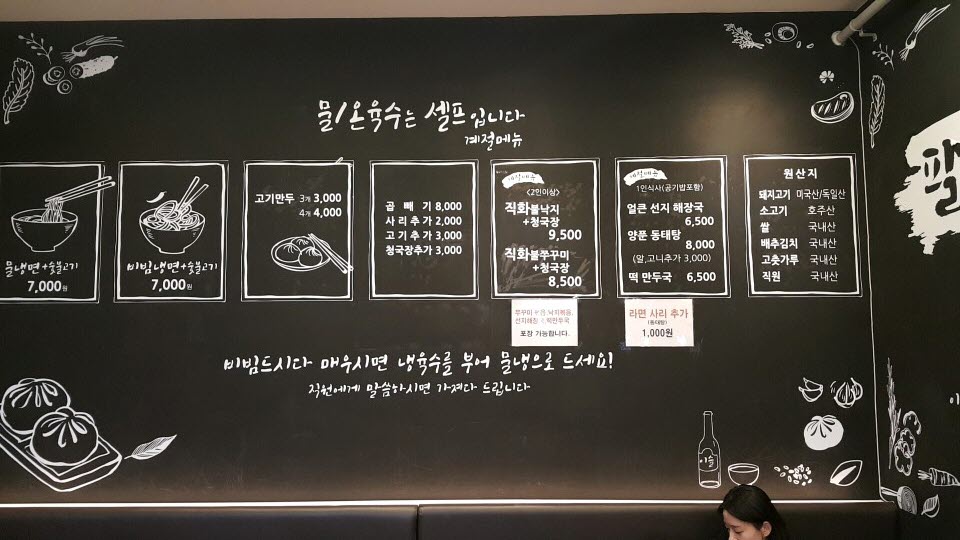 물/온육수는 셀프입니다
계절메뉴
물냉면+숯불고기
7,000원
비빔냉면+숯불고기
7,000원
고기만두 3개 3,000
4개 4,000
곱 빼 기 8,000
사리추가 2,000
고기추가 3,000
청국장추가 3,000
계절메뉴
<2인이상>
직화불낙지
+청국장
9,500
직화불쭈꾸미
+청국장
8,500
계절메뉴
1인식사(공기밥포함)
얼큰 선지 해장국
6,500
양푼 동태탕
8,000
(알,고니추가 3,000)
떡 만두국 6,500
원산지
돼지고기 미국산/독일산
소고기 호주산
쌀 국내산
배추김치 국내산
고춧가루 국내산
직원 국내산
포장 가능합니다.
라면 사리 추가
(동태탕)
1,000원
비빔드시다 매우시면 냉육수를 부어 물냉으로 드세요!
직원에게 말씀하시면 가져다 드립니다
이슬
팔